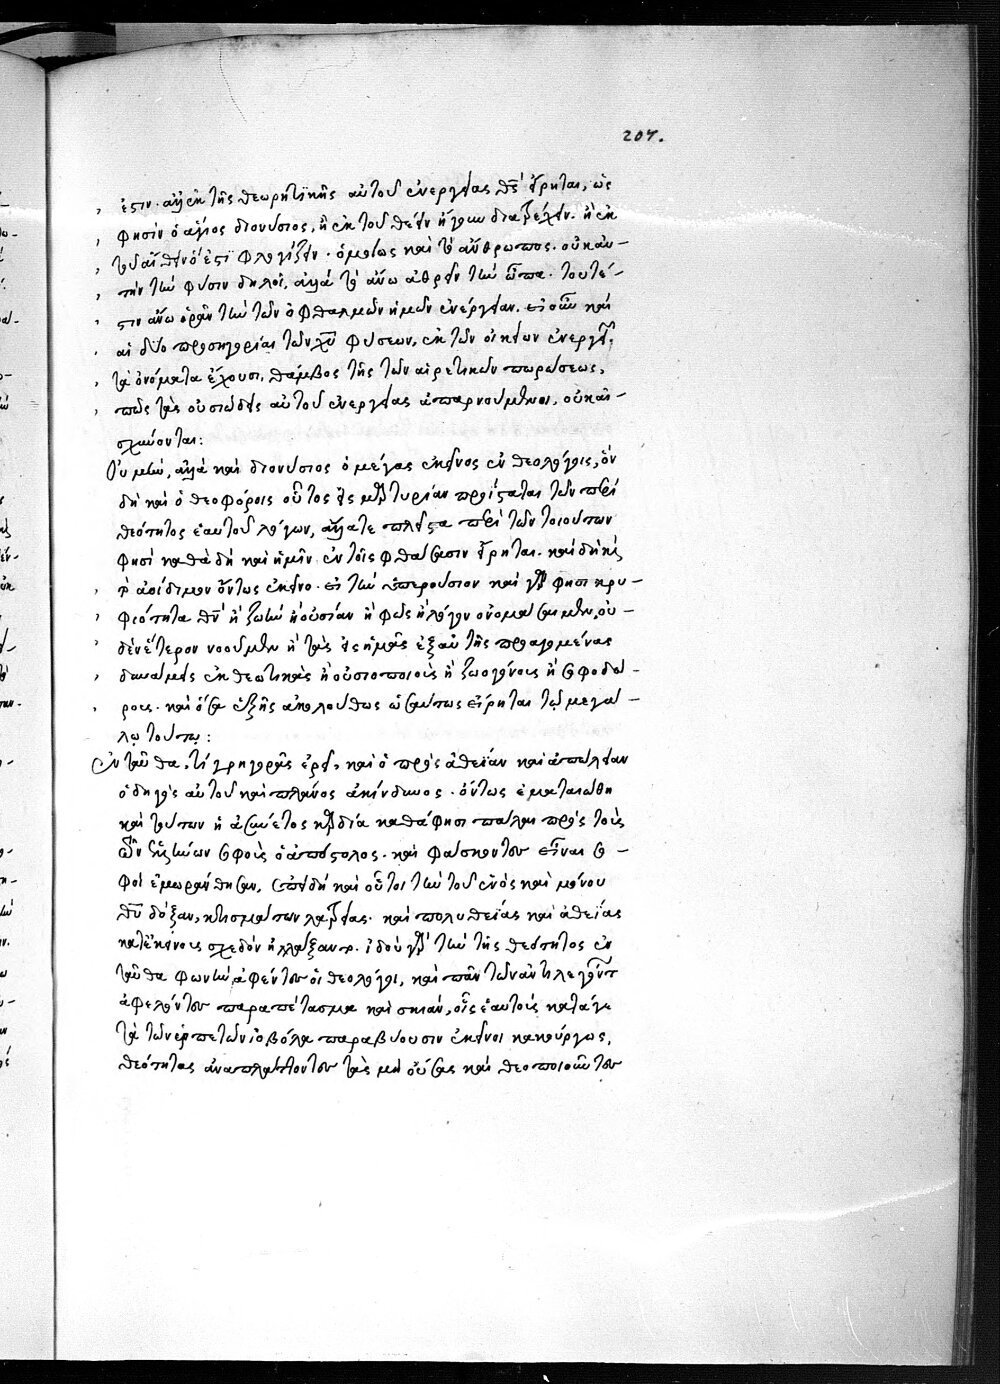 207.
ἐστιν. ἀλλ' ἐκ τῆς θεωρητικῆς αὐτοῦ ἐνεργείας θεὸς εἴρηται, ὡς
φησὶν ὁ ἅγιος διονύσιος, ἢ ἐκ τοῦ θέειν ἤγουν διατρέχειν. ἢ ἐκ
τοῦ αἴθειν ὅ ἐστι φλογίζειν. ὁμοίως καὶ τὸ ἄνθρωπος. οὐκ αὐ-
τὴν τὴν φύσιν δηλοῖ, ἀλλὰ τὸ ἄνω ἀθρεῖν τὴν ὦπα. τουτέ-
στιν ἄνω ὁρᾶν τὴν τῶν ὀφθαλμῶν ἡμῶν ἐνέργειαν. εἰ οὖν καὶ
αἱ δύο προσηγορίαι τῶν χυ φύσεων, ἐκ τῶν οἰκείων ἐνεργειῶν
τὰ ὀνόματα ἔχουσι, θάμβος τῆς τῶν αἱρετικῶν πωρώσεως,
πῶς τὰς οὐσιώδεις αὐτοῦ ἐνεργείας ἀπαρνούμενοι, οὐκ αἰ-
σχύνονται:
Οὐ μὴν, ἀλλὰ καὶ διονύσιος ὁ μέγας ἐκεῖνος ἐν θεολόγοις, ὃν
δὴ καὶ ὁ θεοφόροις οὗτος εἰς μαρτυρίαν προΐσχεται τῶν περὶ
θεότητος ἑαυτοῦ λόγων, ἄλλα τε πλεῖστα περὶ τῶν τοιούτων
φησὶ καθὰ δὴ καὶ ἡμῖν ἐν τοῖς φθάσασιν εἴρηται. καὶ δὴ καὶ
τὸ ἀοίδιμον ὄντως ἐκεῖνο. εἰ τὴν ὑπερούσιον καὶ γάρ φησι κρυ-
φιότητα θν ἢ ζωὴν ἢ οὐσίαν ἢ φῶς ἢ λόγον ὀνομάσαιμεν, οὐ-
δὲν ἕτερον νοοῦμεν ἢ τὰς εἰς ἡμᾶς ἐξ αὐτῆς προαγομένας
δυνάμεις ἐκθεωτικὰς ἢ οὐσιοποιοὺς ἢ ζωογόνους ἢ σοφοδώ-
ρους. καὶ ὅσα ἑξῆς ἀκολούθως ὡσαύτως εἴρηται τῷ μεγά-
λῳ τούτῳ:
Ἐνταῦθα, τί γρηγορᾶς ἐρεῖ, καὶ ὁ πρὸς ἀθεΐαν καὶ ἀπώλειαν
ὁδηγὸς αὐτοῦ καὶ πλάνος ἀκίνδυνος. ὄντως ἐματαιώθη
καὶ τούτων ἡ ἀσύνετος καρδία καθά φησι πάλαι πρὸς τοὺς
τῶν ἑλλήνων σοφοὺς ὁ ἀπόστολος. καὶ φάσκοντες εἶναι σο-
φοὶ ἐμωράνθησαν, ἐπειδὴ καὶ οὗτοι τὴν τοῦ ἑνὸς καὶ μόνου
θυ δόξαν, κτισμάτων λατρείας. καὶ πολυθεΐας καὶ ἀθεΐας
κατ' ἐκείνους σχεδὸν ἠλλάξαντο. ἰδοὺ γὰρ τὴν τῆς θεότητος ἐν
ταῦθα φωνὴν ἀφέντες οἱ θεολόγοι, καὶ πᾶν τῶν ἀντιλεγόντων
ἀφελόντες παραπέτασμα καὶ σκιὰν, οἷς ἑαυτοὺς κατάγει
τὰ τῶν ἑρπετῶν ἰοβόλα παραβύουσιν ἐκεῖνοι κακούργως,
θεότητας ἀναπλάττοντες τὰς μὴ οὔσας καὶ θεοποιοῦντες